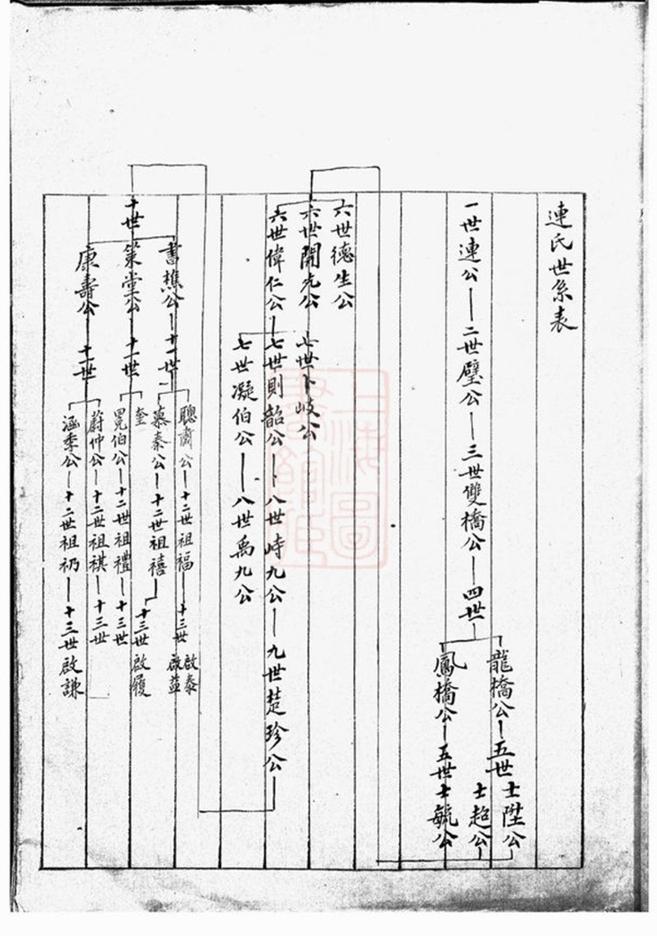 連氏世系表
一世連公—二世璧公—三世雙橋公—四世
龍橋公—五世士陞公
士超公
鳳橋公—五世士毓公
六世德生公
六世開先公 七世卜岐公
六世偉仁公—七世則韶公—八世峙九公—九世楚珍公
七世凝伯公—八世禹九公
十世
書樵公—十一世
聰肅公—十二世祖福—十三世啟泰
啟益
慕秦公—十二世祖禧—十三世啟履
策堂公—十一世
奎
冕伯公—十二世祖禮—十三世
康壽公—十一世
蔚仲公—十二世祖祺—十三世
涵季公—十二世祖礽—十三世啟謙